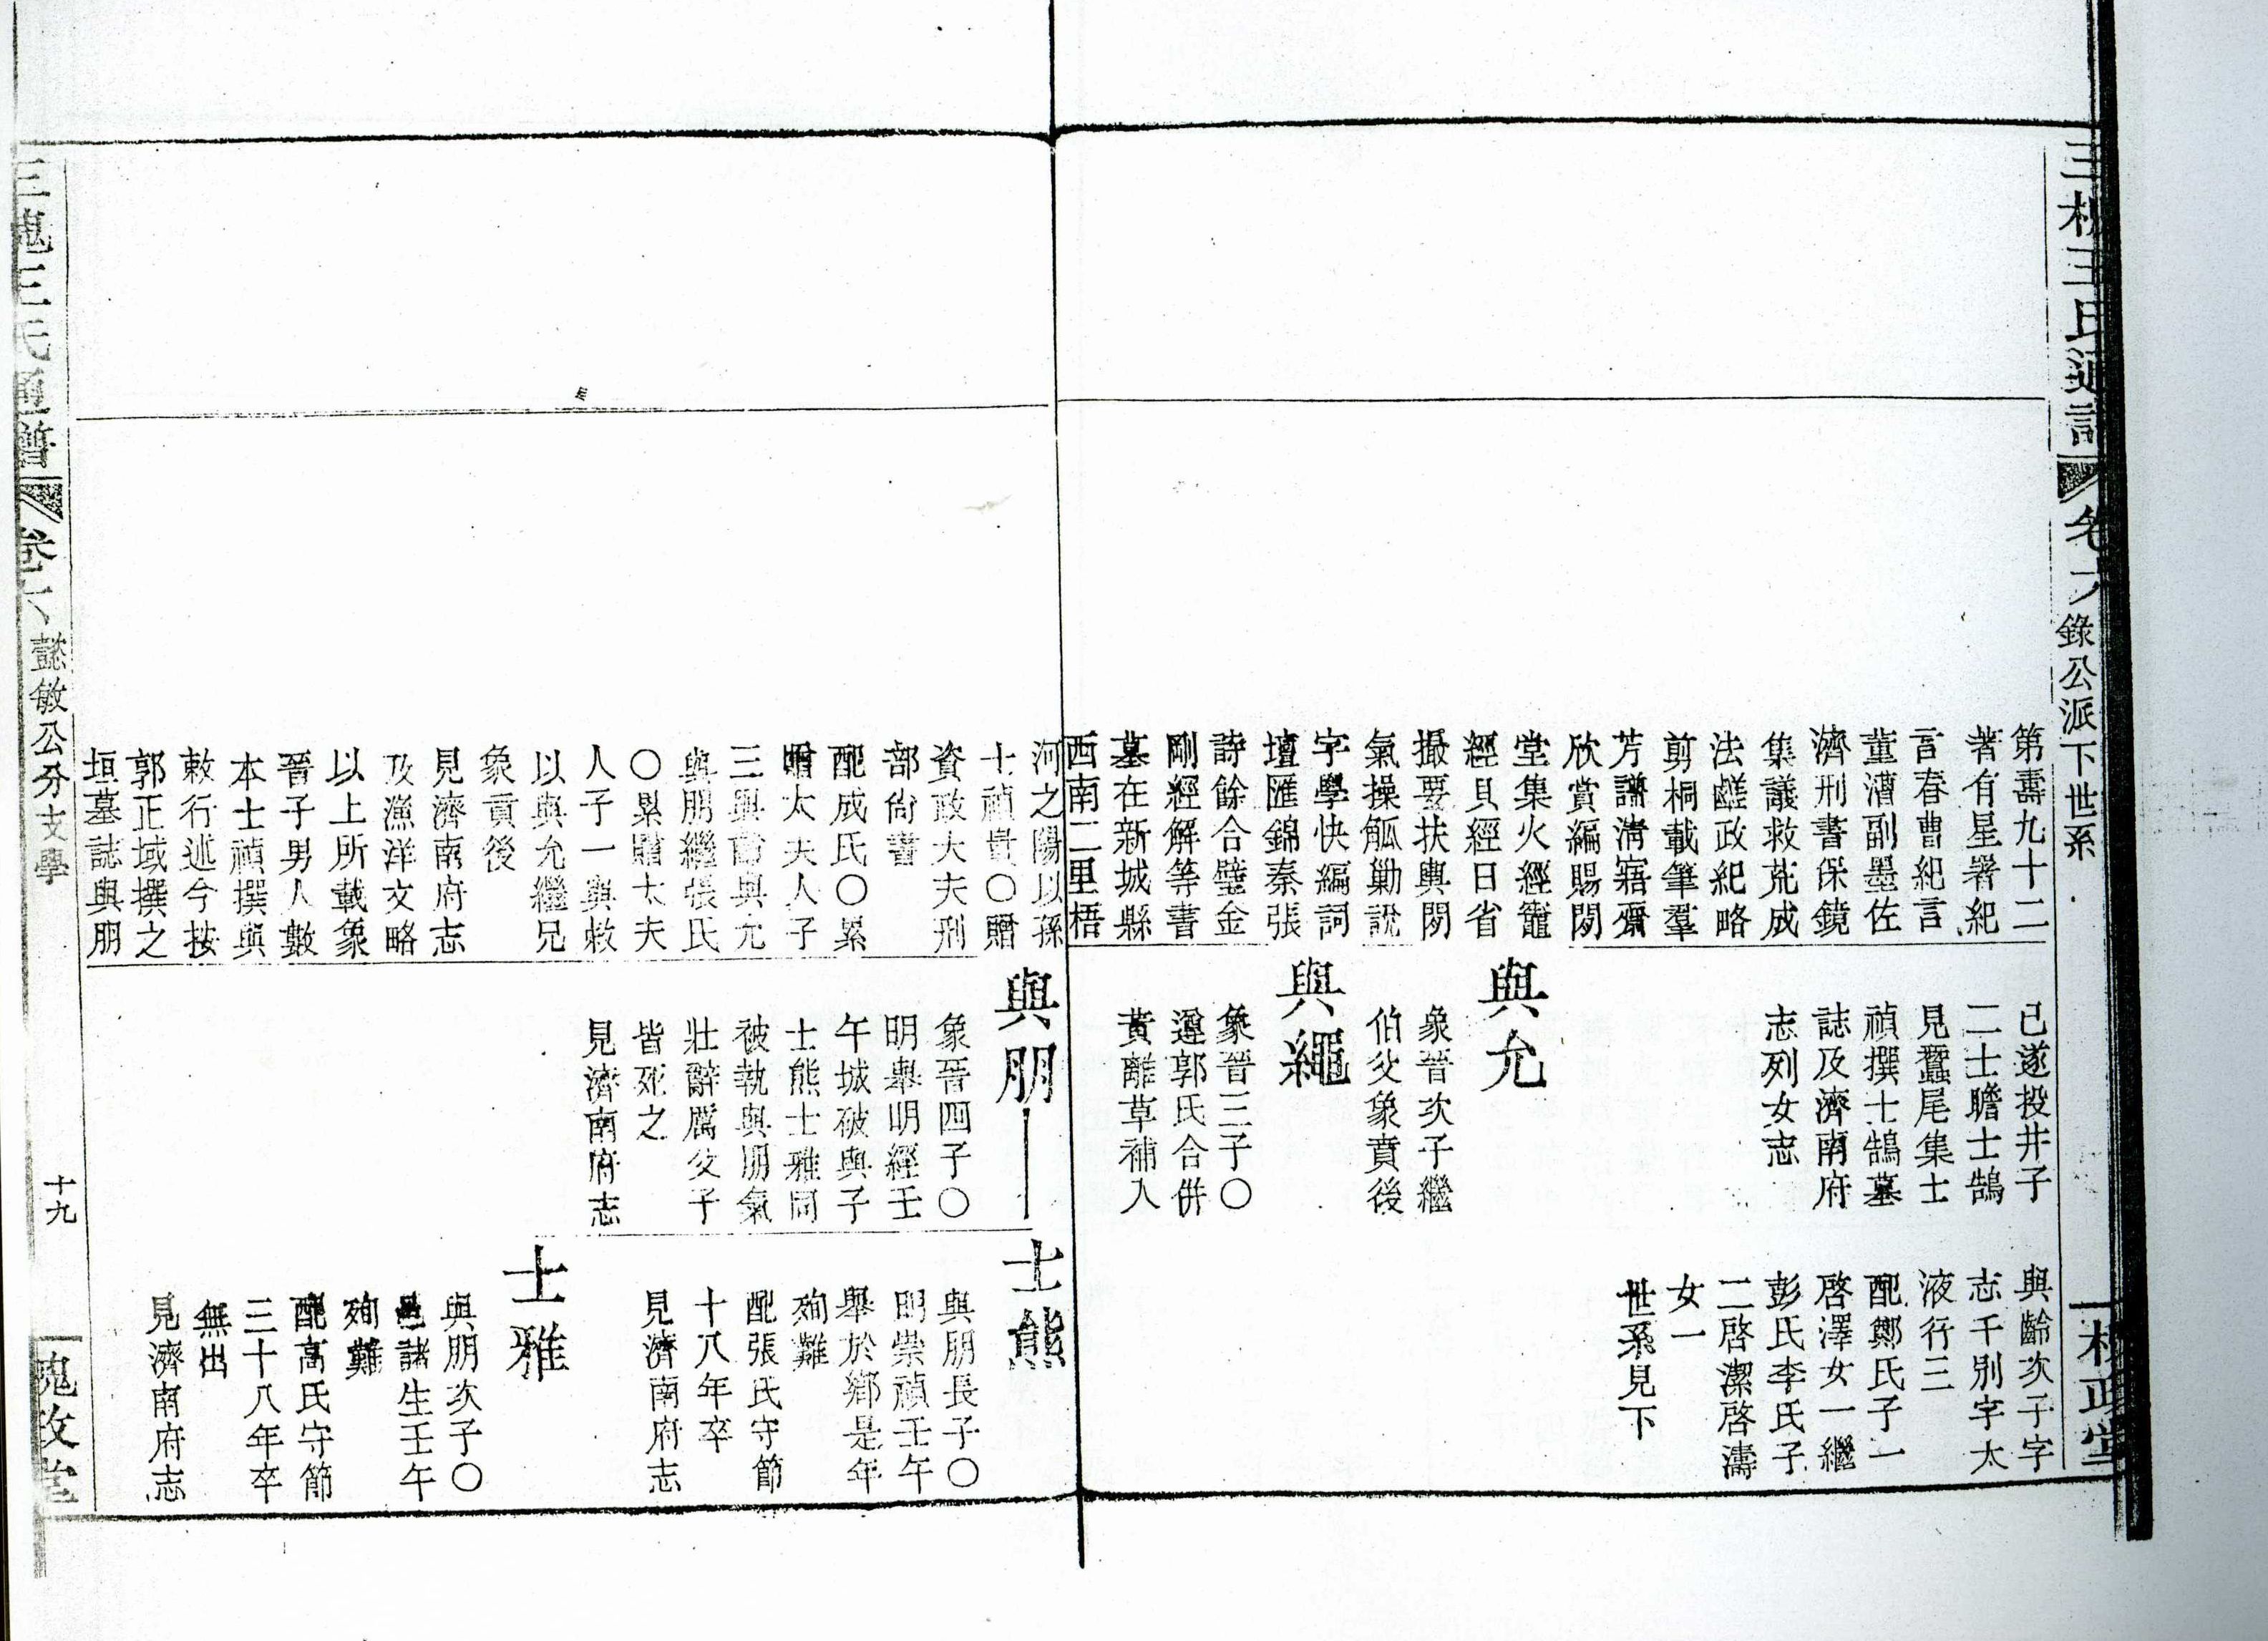 三槐王氏通譜
卷六
錄公派下世系
槐政堂
第壽九十二
著有星署紀
言春曹紀言
董漕副墨佐
濟刑書保鏡
集議救荒成
法鹺政紀略
剪桐載筆羣
芳譜清寤齋
欣賞編賜閒
堂集火經籠
經貝經日省
撮要扶輿閒
氣操觚勦說
字學快編詞
壇匯錦秦張
詩餘合璧金
剛經解等書
墓在新城縣
西南二里梧
河之陽以孫
士禎貴〇贈
資政大夫刑
部尙書
配成氏〇累
贈太夫人子
三與齡與允
與朋繼張氏
〇累贈太夫
人子一與敕
以與允繼兄
象賁後
見濟南府志
及漁洋文略
以上所載象
晉子男人數
本士禎撰與
敕行述今按
郭正域撰之
垣墓誌與朋
已遂投井子
二士瞻士鵠
見蠶尾集士
禎撰士鵠墓
誌及濟南府
志列女志
與允
象晉次子繼
伯父象賁後
與繩
象晉三子〇
遵郭氏合併
黃離草補入
與朋
象晉四子〇
明舉明經壬
午城破與子
士熊士雅同
被執與朋氣
壯辭厲父子
皆死之
見濟南府志
與齡次子字
志千別字太
液行三
配鄭氏子一
啓澤女一繼
彭氏李氏子
二啓潔啓濤
女一
世系見下
士熊
與朋長子〇
明崇禎壬午
舉於鄉是年
殉難
配張氏守節
十八年卒
見濟南府志
士雅
與朋次子〇
邑諸生壬午
殉難
配高氏守節
三十八年卒
無出
見濟南府志
三槐王氏通譜
卷六
懿敏公分支學
十九
槐政堂